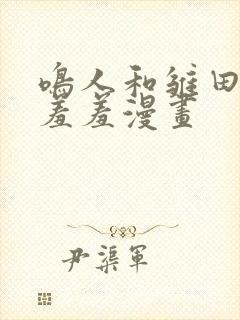 鳴人和雏田
羞羞漫畫
尹渠軍